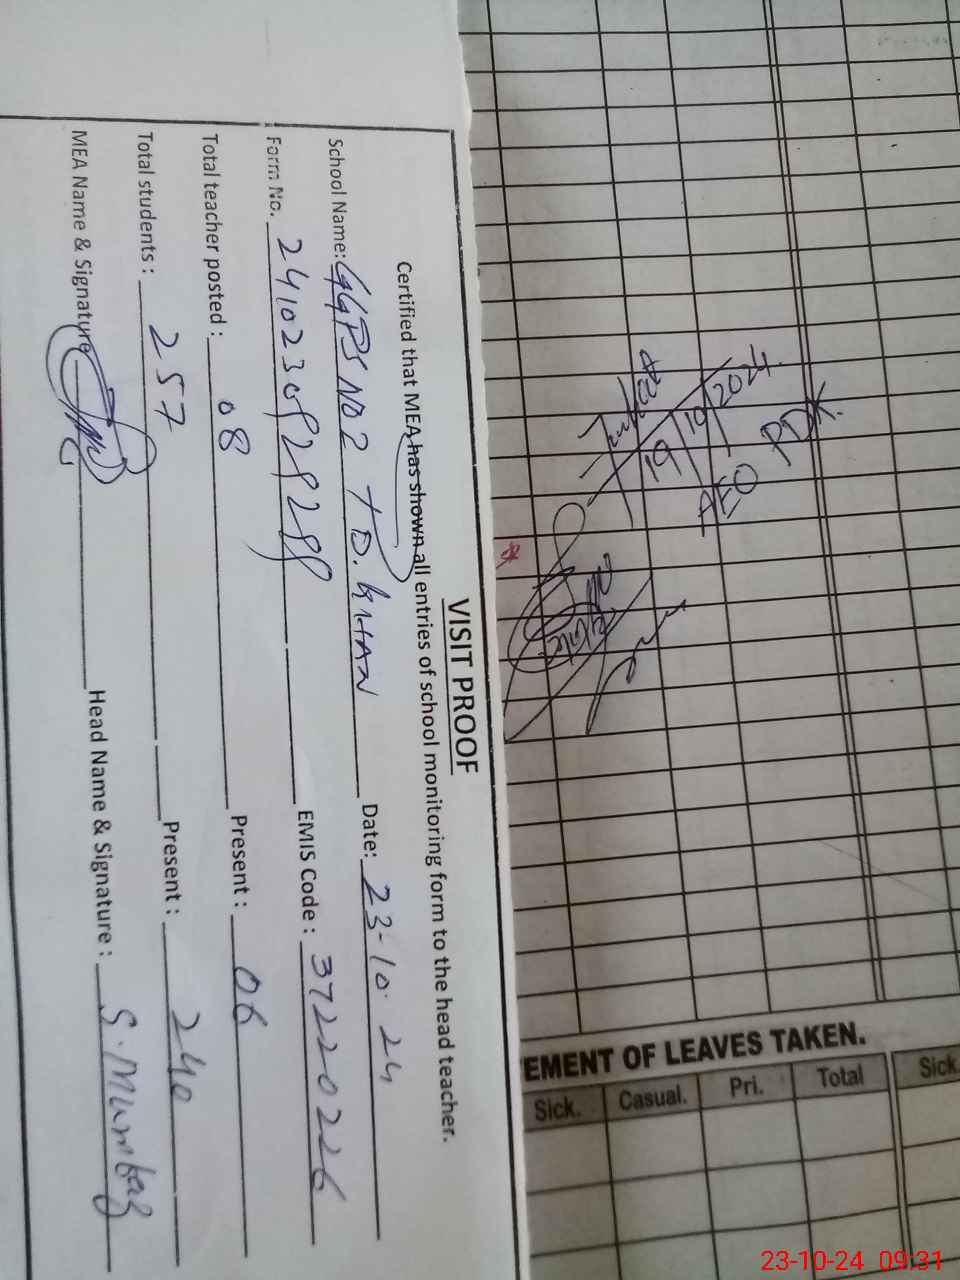 VISIT PROOF
Certified that MEA has shown all entries of school monitoring form to the head teacher.
School Name: GGPS NO2 T D. KHAN Date: 23-10-24
Form No. EMIS Code: 37220226
Total teacher posted: 08 Present: 06
Total students: 257 Present: 240
MEA Name & Signature Head Name & Signature: S. Mumtaz
19/10/2024
AEO PDK.
EMENT OF LEAVES TAKEN.
Sick. Casual. Pri. Total Sick
23-10-24 09:31